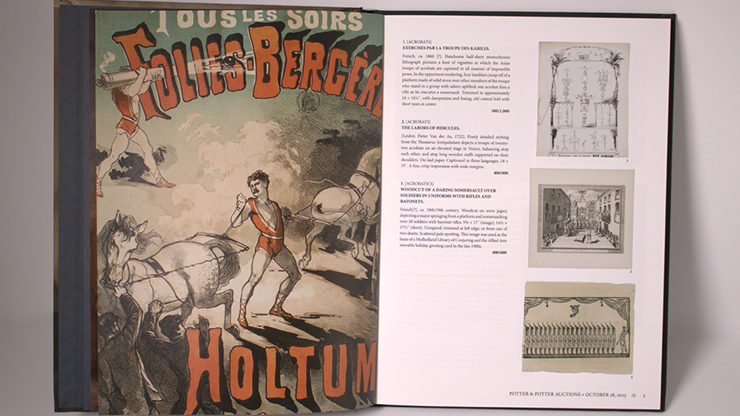 TOUS LES SOIRS
FOLIES-BERGÈRE
HOLTUM
1. [ACROBATS]
EXERCISES PAR LA TROUPE DES KABILES.
French, ca. 1860 [?]. Handsome half-sheet monochrome
lithograph pictures a host of vignettes in which the Asian
troupe of acrobats are captured in all manner of impossible
poses. In the uppermost rendering, four tumblers jump off of a
platform made of solid stone over other members of the troupe
who stand in a group with sabers uplifted; one acrobat fires a
rifle as he executes a somersault. Trimmed to approximately
24 × 18¼", with dampstains and foxing, old central fold with
short tears at center.
500/1,000
2. [ACROBATS]
THE LABORS OF HERCULES.
[Leiden: Pieter Van der Aa, 1722]. Finely detailed etching
from the Thesaurus Antiquitatum depicts a troupe of twenty-
two acrobats on an elevated stage in Venice, balancing atop
each other, and atop long wooden staffs supported on their
shoulders. On laid paper. Captioned in three languages. 16 ×
19". A fine, crisp impression with wide margins.
400/800
3. [ACROBATICS]
WOODCUT OF A DARING SOMERSAULT OVER
SOLDIERS IN UNIFORMS WITH RIFLES AND
BAYONETS.
French[?], ca. 18th/19th century. Woodcut on wove paper,
depicting a major springing from a platform and somersaulting
over 20 soldiers with bayonet rifles.
Unsigned, trimmed at left edge, or from one of
two sheets. Scattered pale spotting. This image was used as the
basis of a Mulholland Library of Conjuring and the Allied Arts
movable holiday greeting card in the late 1980s.
400/600
1
2
3
POTTER & POTTER AUCTIONS • OCTOBER 28, 2023